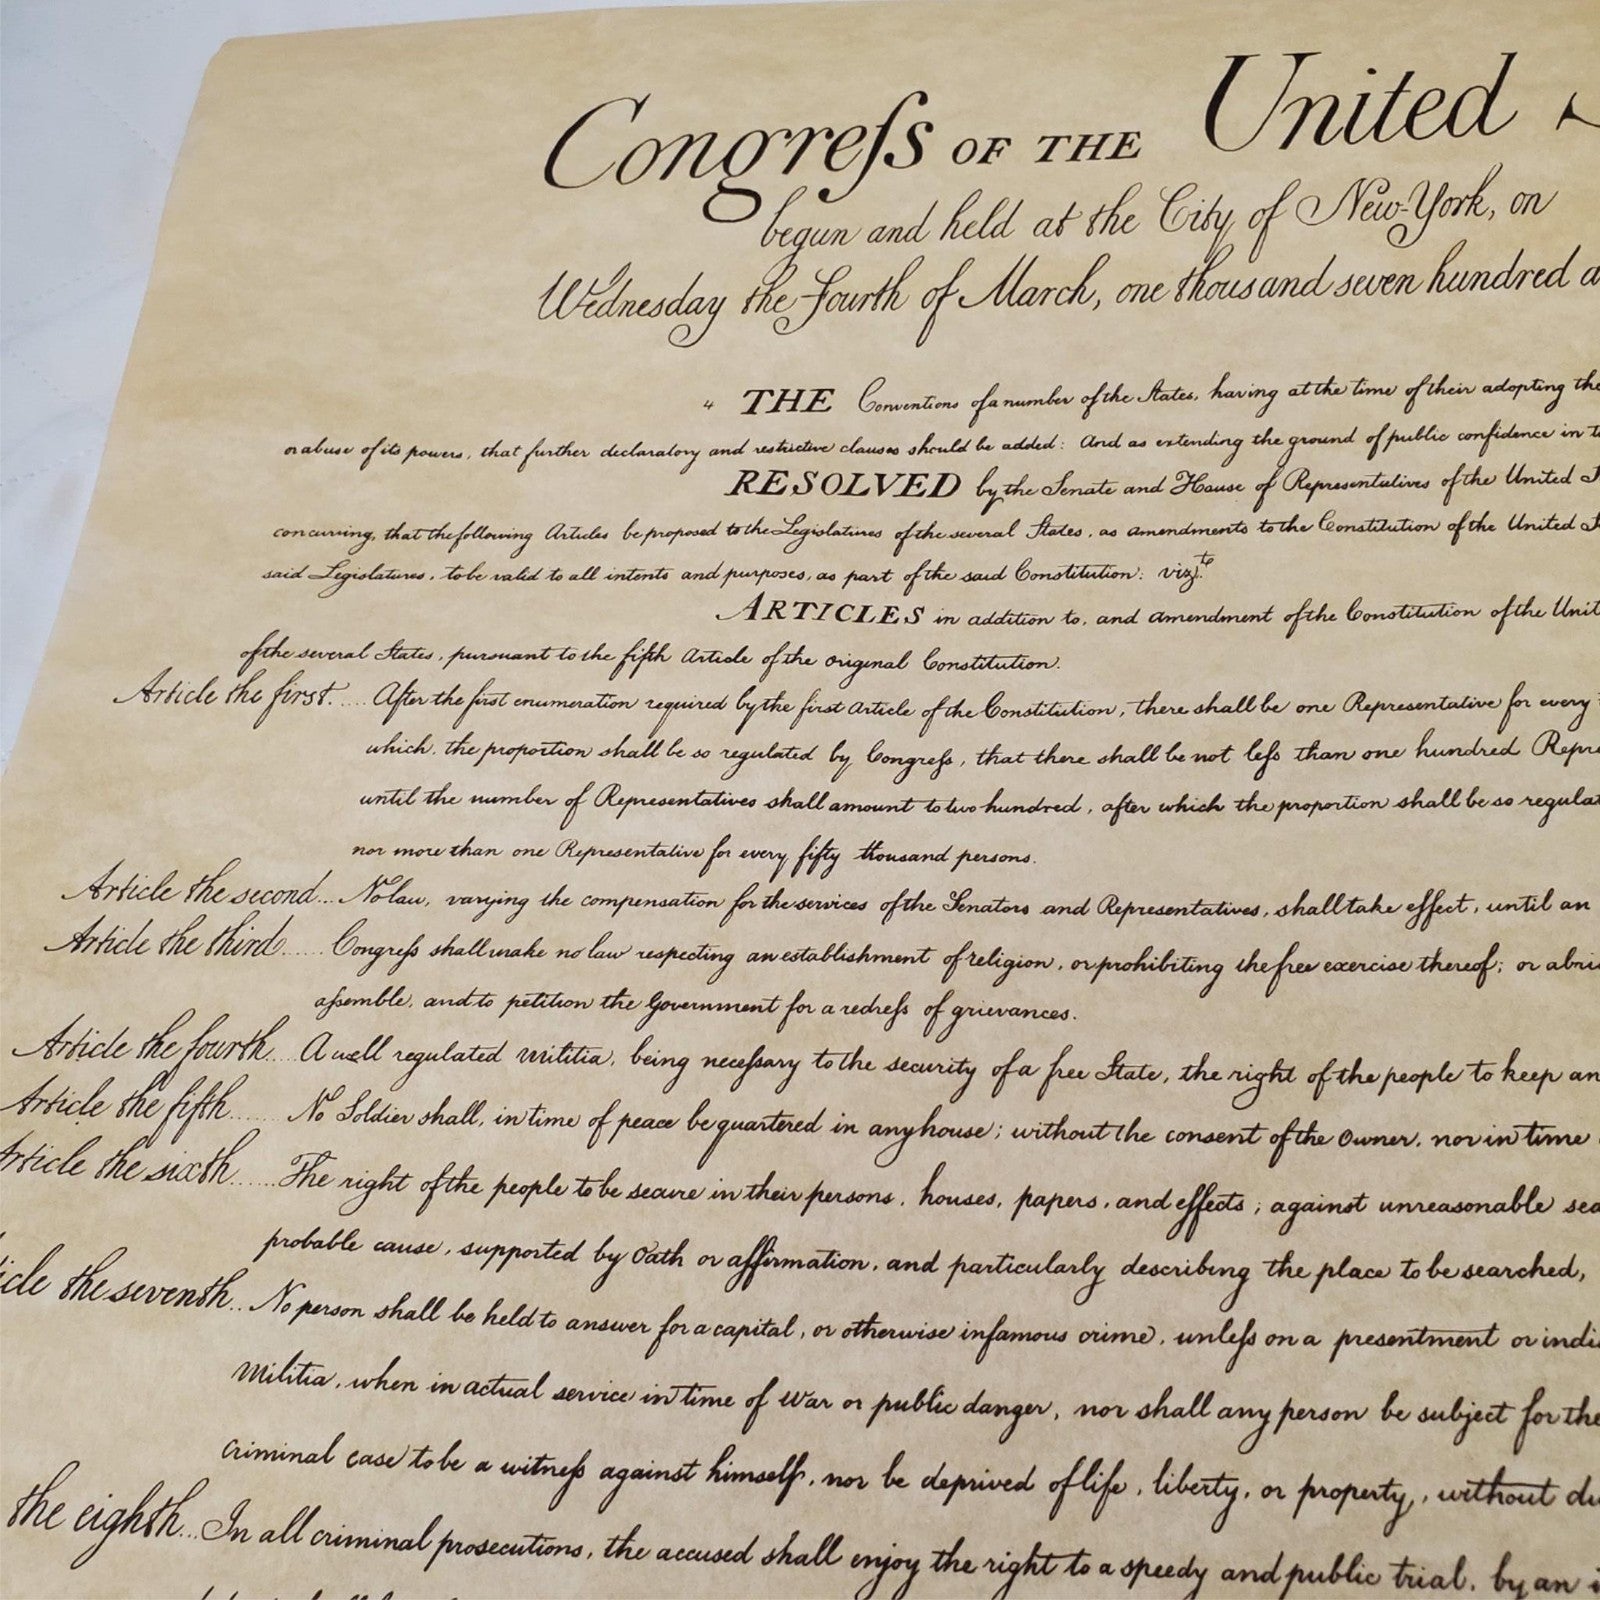 Congreſs OF THE United
begun and held at the City of New-York, on
Wednesday the Fourth of March, one thousand seven hundred a
THE Conventions of a number of the States, having at the time of their adopting the
or abuse of its powers, that further declaratory and restrictive clauses should be added: And as extending the ground of public confidence in
RESOLVED by the Senate and House of Representatives of the United
concurring, that the following Articles be proposed to the Legislatures of the several States, as amendments to the Constitution of the United
said Legislatures, to be valid to all intents and purposes, as part of the said Constitution; vizt.
ARTICLES in addition to, and amendment of the Constitution of the Unit
of the several States, pursuant to the fifth Article of the original Constitution.
Article the first..... After the first enumeration required by the first Article of the Constitution, there shall be one Representative for every
which, the proportion shall be so regulated by Congreſs, that there shall be not leſs than one hundred Repre
until the number of Representatives shall amount to two hundred, after which the proportion shall be so regulat
nor more than one Representative for every fifty thousand persons.
Article the second... No law, varying the compensation for the services of the Senators and Representatives, shall take effect, until an
Article the third...... Congreſs shall make no law respecting an establishment of religion, or prohibiting the free exercise thereof; or abri
aſsemble, and to petition the Government for a redreſs of grievances.
Article the fourth.... A well regulated Militia, being neceſsary to the security of a free State, the right of the people to keep an
Article the fifth...... No Soldier shall, in time of peace be quartered in any house; without the consent of the Owner, nor in time
Article the sixth...... The right of the people to be secure in their persons, houses, papers, and effects; against unreasonable sea
probable cause, supported by Oath or affirmation, and particularly describing the place to be searched,
icle the seventh.. No person shall be held to answer for a capital, or otherwise infamous crime, unleſs on a presentment or indi
Militia, when in actual service in time of War or public danger, nor shall any person be subject for the
criminal case to be a witneſs against himself, nor be deprived of life, liberty, or property, without du
the eighth... In all criminal prosecutions, the accused shall enjoy the right to a speedy and public trial, by an i